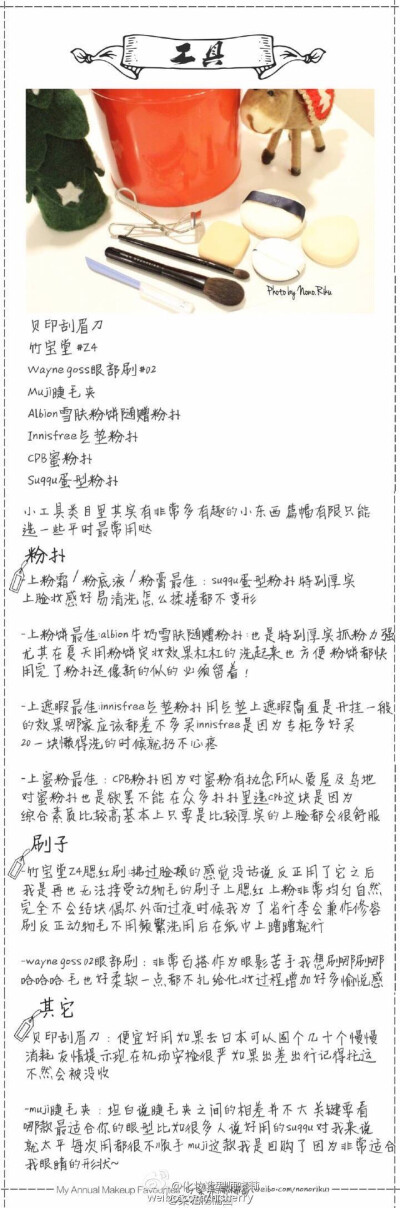 工具
Photo by Nono.Riku
贝印刮眉刀
竹宝堂 #Z4
Wayne goss眼部刷#02
Muji睫毛夹
Albion雪肤粉饼随赠粉扑
Innisfree气垫粉扑
CPB蜜粉扑
Suqqu蛋型粉扑
小工具类目里其实有非常多有趣的小东西 篇幅有限只能
选一些平时最常用哒
粉扑
-上粉霜/粉底液/粉膏最佳：suqqu蛋型粉扑 特别厚实
上脸妆感好易清洗 怎么揉搓都不变形
-上粉饼最佳:albion牛奶雪肤随赠粉扑:也是特别厚实抓粉力强
尤其在夏天用粉饼定妆效果杠杠的洗起来也方便 粉饼都快
用完了粉扑还像新的似的 必须留着！
-上遮瑕最佳:innisfree气垫粉扑 用气垫上遮瑕简直是开挂一般
的效果哪家应该都差不多买innisfree是因为专柜多好买
20一块懒得洗的时候就扔不心疼
-上蜜粉最佳：CPB粉扑因为对蜜粉有执念所以爱屋及乌地
对蜜粉扑也是欲罢不能 在众多扑扑里选CPB这块是因为
综合素质比较高基本上只要是比较厚实的上脸都会很舒服
刷子
-竹宝堂Z4腮红刷:拂过脸颊的感觉没话说反正用了它之后
我是再也无法接受动物毛的刷子上腮红 上粉非常均匀自然
完全不会结块偶尔外面过夜时候我为了省行李会兼作修容
刷反正动物毛不用频繁洗用后在纸巾上蹭蹭就行
-wayne goss 02眼部刷：非常百搭作为眼影苦手我想刷哪刷哪
哈哈哈 毛也好柔软一点都不扎给化妆过程增加好多愉悦感
其它
贝印刮眉刀：便宜好用如果去日本可以囤个几十个慢慢
消耗 友情提示现在机场安检很严 如果出差出行记得托运
不然会被没收
-muji睫毛夹：坦白说睫毛夹之间的相差并不大 关键要看
哪款最适合你的眼型比如很多人说好用的suqqu对我来说
就太平 每次用都很不顺手 muji这款我是回购了因为非常适合
我眼睛的形状~
My Annual Makeup Favourites by
weibo.com/nonoriku